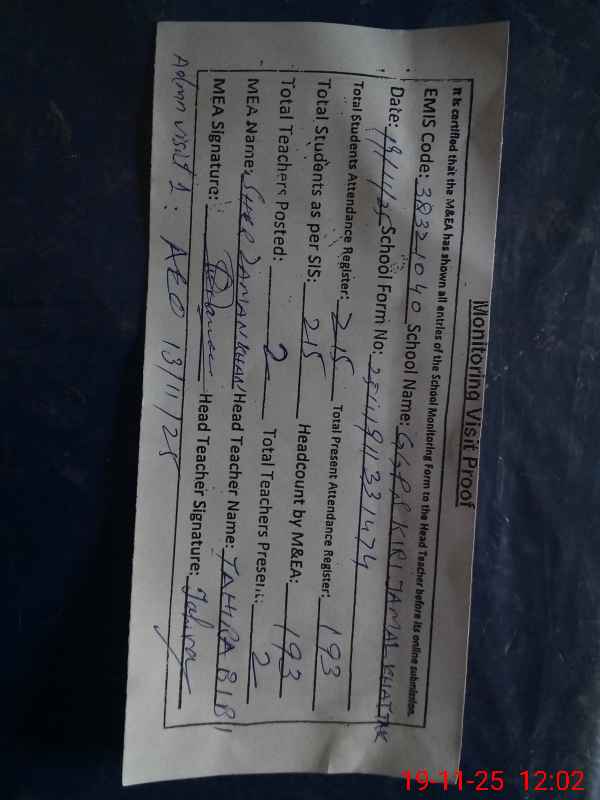 Monitoring Visit Proof
It is certified that the M&EA has shown all entries of the School Monitoring Form to the Head Teacher before its online submission.
EMIS Code: 38321040 School Name: GGPS KIRI JAMAL KHATTAK
Date: 19/11/25 School Form No:
Total Students Attendance Register: 215 Total Present Attendance Register: 193
Total Students as per SIS: 215 Headcount by M&EA: 193
Total Teachers Posted: 2 Total Teachers Present: 2
MEA Name: SHER ZAMAN KHAN Head Teacher Name: TAHIRA BIBI
MEA Signature: Head Teacher Signature: Tahira
Admn visit 1: AEO 13/11/25
19-11-25 12:02